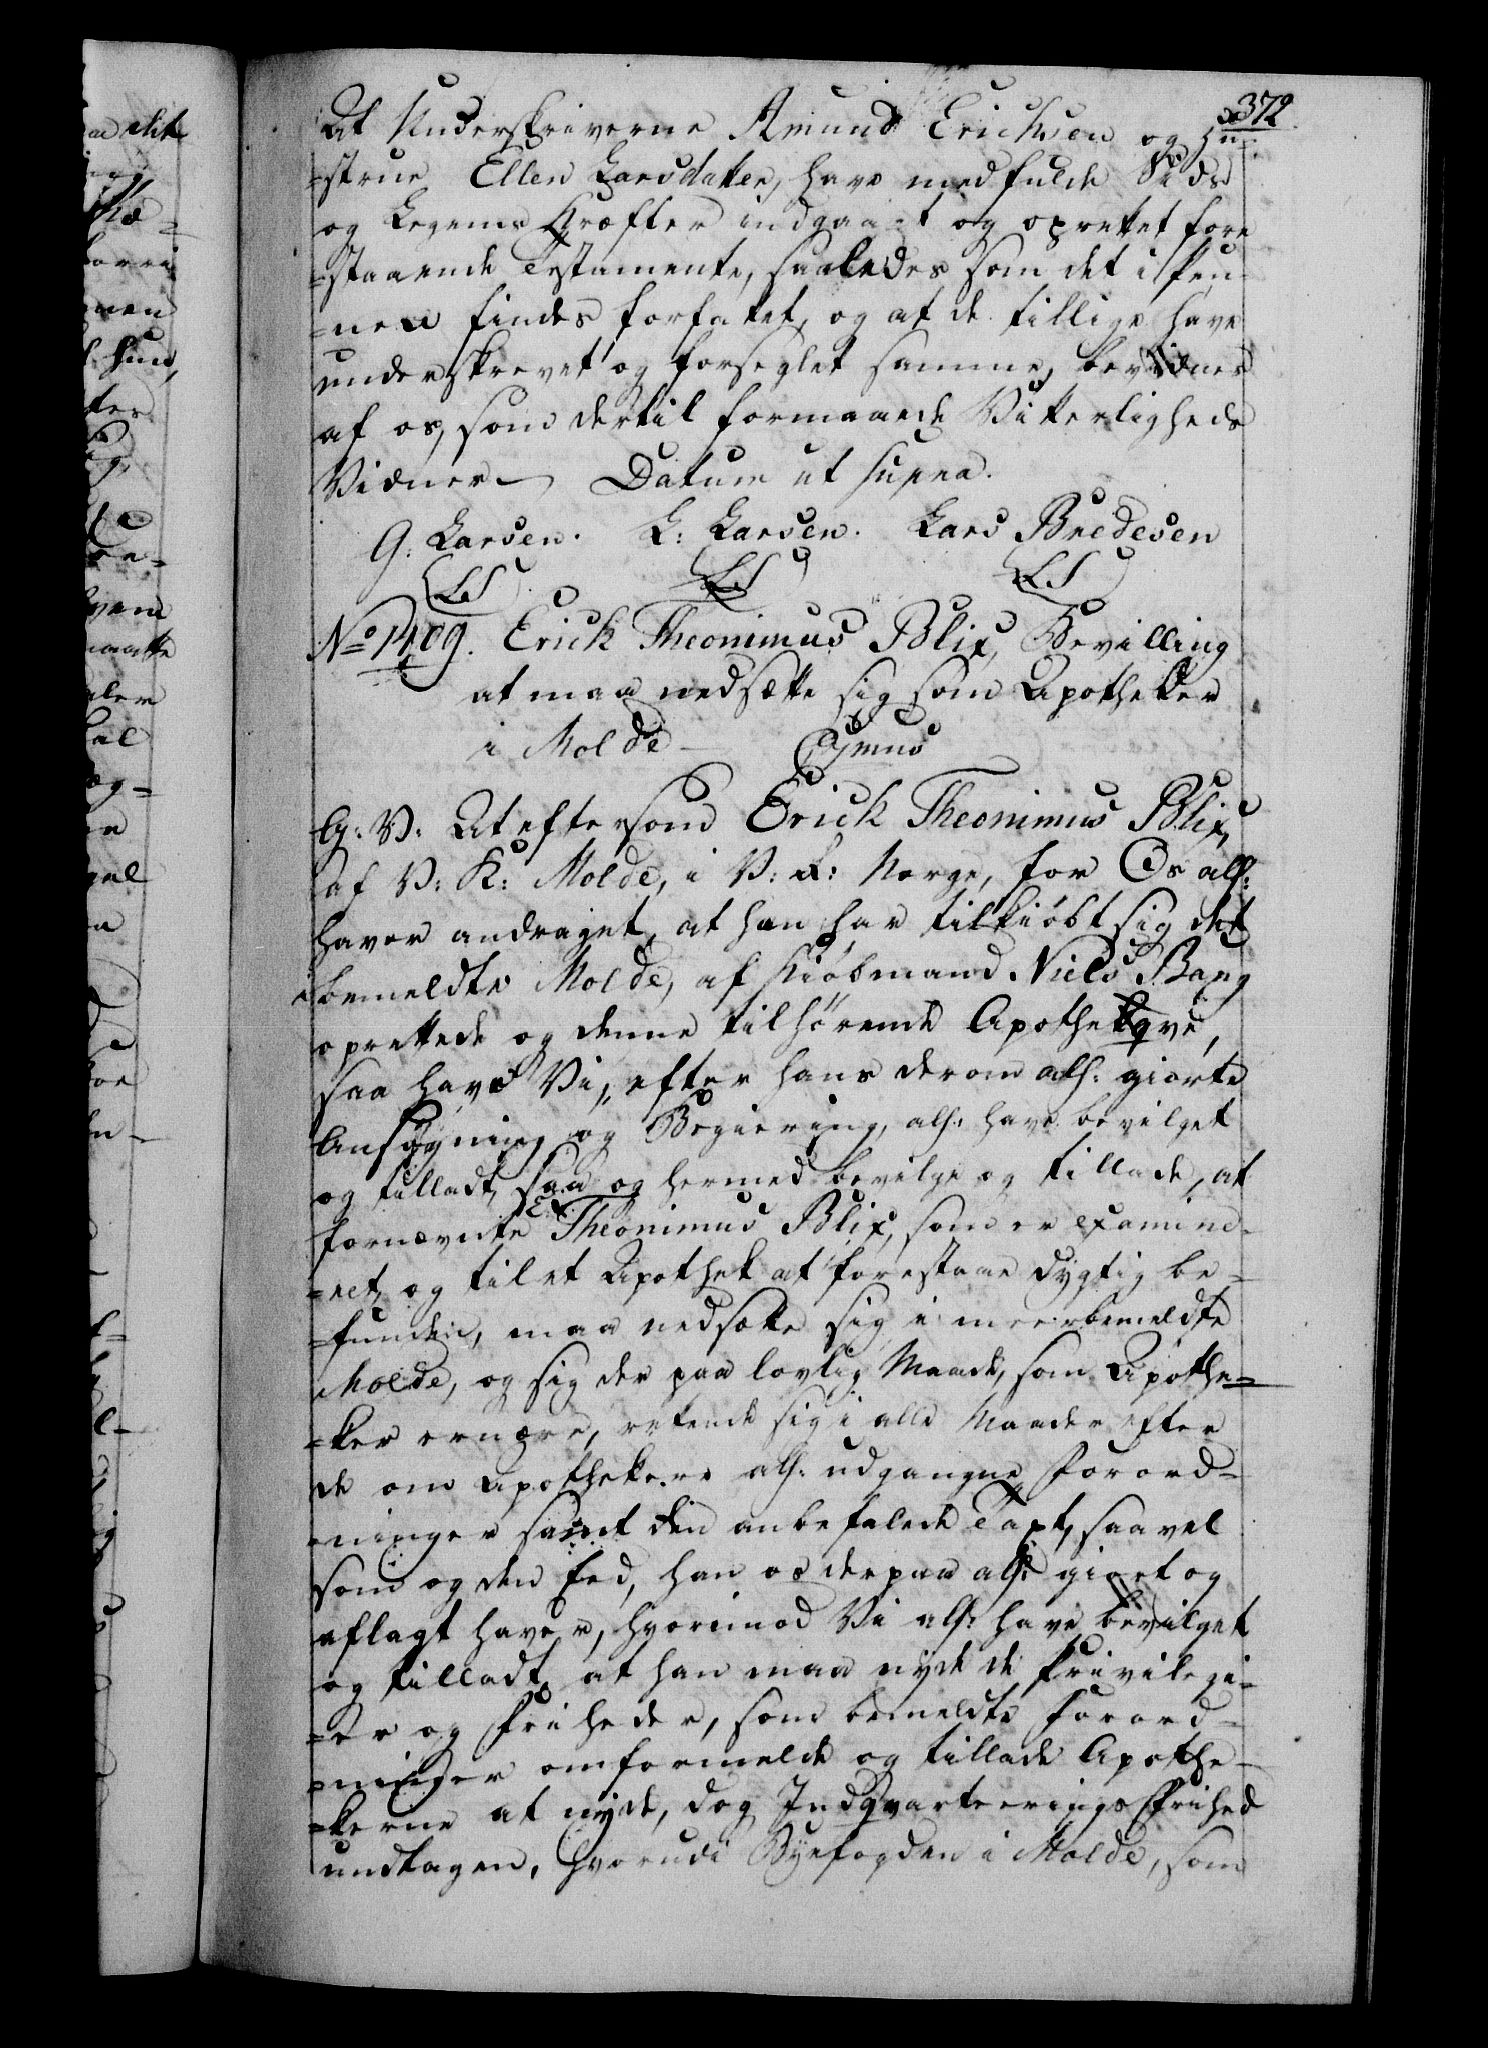 372
At Underskriverne Amund Erichsen og Hu-
=strue Ellen Larsdatter, have med fulde Sinds
og Legems Kræfter indgaaet og oprettet fore
=staaende Testamente, saaledes som det i Pen-
=nen findes forfattet, og at de tillige have
underskrevet og forseglet samme, bevidnes
af os, som dertil formaaede Vitterligheds
Vidner — Datum ut supra.
G: Larsen. L: Larsen. Lars Bredesen
(LS) (LS) (LS)
No 1409. Erick Theonimus Blix, Bevilling
at maa nedsætte sig som Apotheker
i Molde —
G: V: At eftersom Erick Theonimus Blix,
af V: K: Molde, i V: R: Norge, for Os all:
haver andraget, at han har tilkiøbt sig det
i bemeldte Molde, af Kiøbmand Niels Bang
oprettede og denne tilhørende Apotheqve,
saa have Vi, efter hans derom all: giorte
Ansøgning og Begiering, all: have bevilget
og tilladt, saa og hermed bevilge og tillade, at
fornævnte E: Theonimus Blix, som er examine-
=ret, og til et Apothek at forestaae dygtig be-
=funden, maa nedsætte sig i meerbemeldte
Molde, og sig der paa lovlig Maade, som Apothe=
=ker ernære, rettende sig i alle Maader efter
de om Apothekere all: udgangne Forord-
=ninger samt den anbefalede Taxt, saavel
som og den Eed, han os derpaa all: giort og
aflagt haver, hvorimod Vi all: have bevilget
og tilladt, at han maa nyde de Privilegi-
=er og Friheder, som bemeldte Forord-
=ninger omformelde og tillade Apothe-
=kerne at nyde, dog Indqvarteerings Frihed
undtagen, hvorudi Byefogden i Molde, som